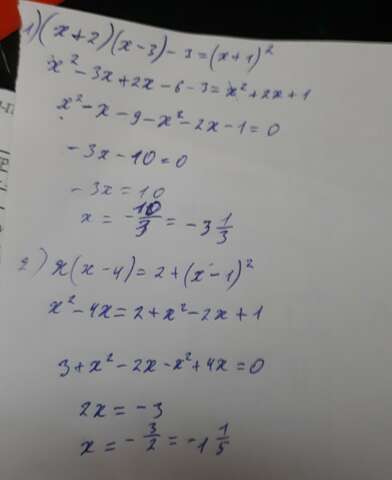 1) (x+2)(x-3)-3=(x+1)²
x²-3x+2x-6-3=x²+2x+1
x²-x-9-x²-2x-1=0
-3x-10=0
-3x=10
x=-10/3=-3 1/3
2) x(x-4)=2+(x-1)²
x²-4x=2+x²-2x+1
3+x²-2x-x²+4x=0
2x=-3
x=-3/2=-1 1/5